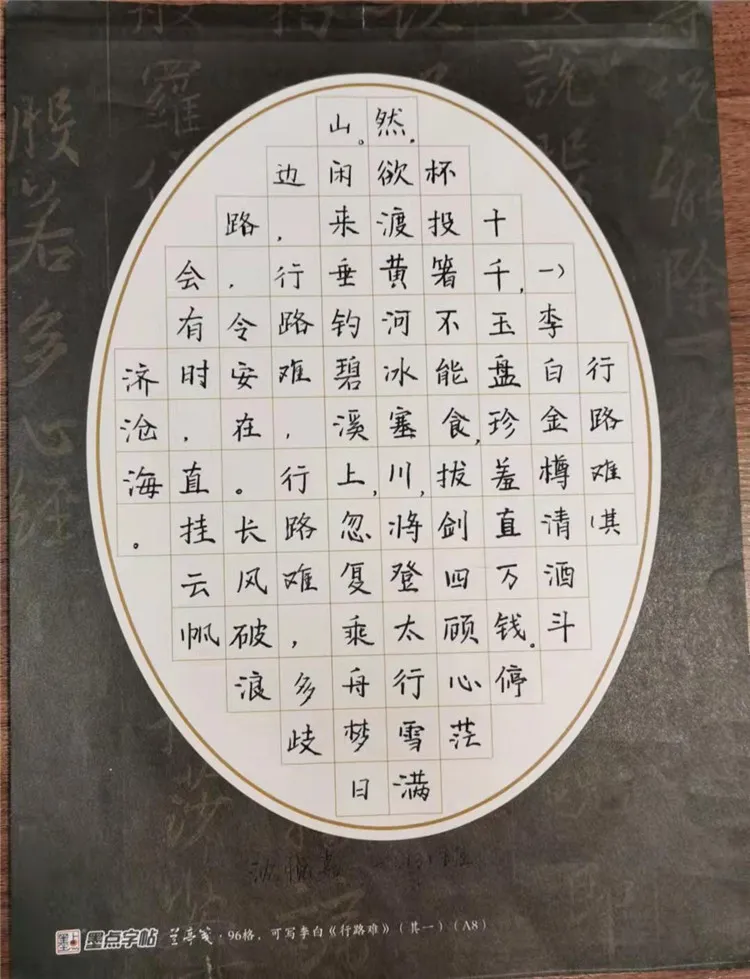 行路难(其
一)李白金樽清酒斗
十千,玉盘珍羞直万钱。停
杯投箸不能食,拔剑四顾心茫
然,欲渡黄河冰塞川,将登太行雪满
山。闲来垂钓碧溪上,忽复乘舟梦日
边,行路难,行路难,多歧
路,令安在。长风破浪
会有时,直挂云帆
济沧海。
般若多心经
墨点字帖 兰亭笺·96格,可写李白《行路难》(其一)(A8)